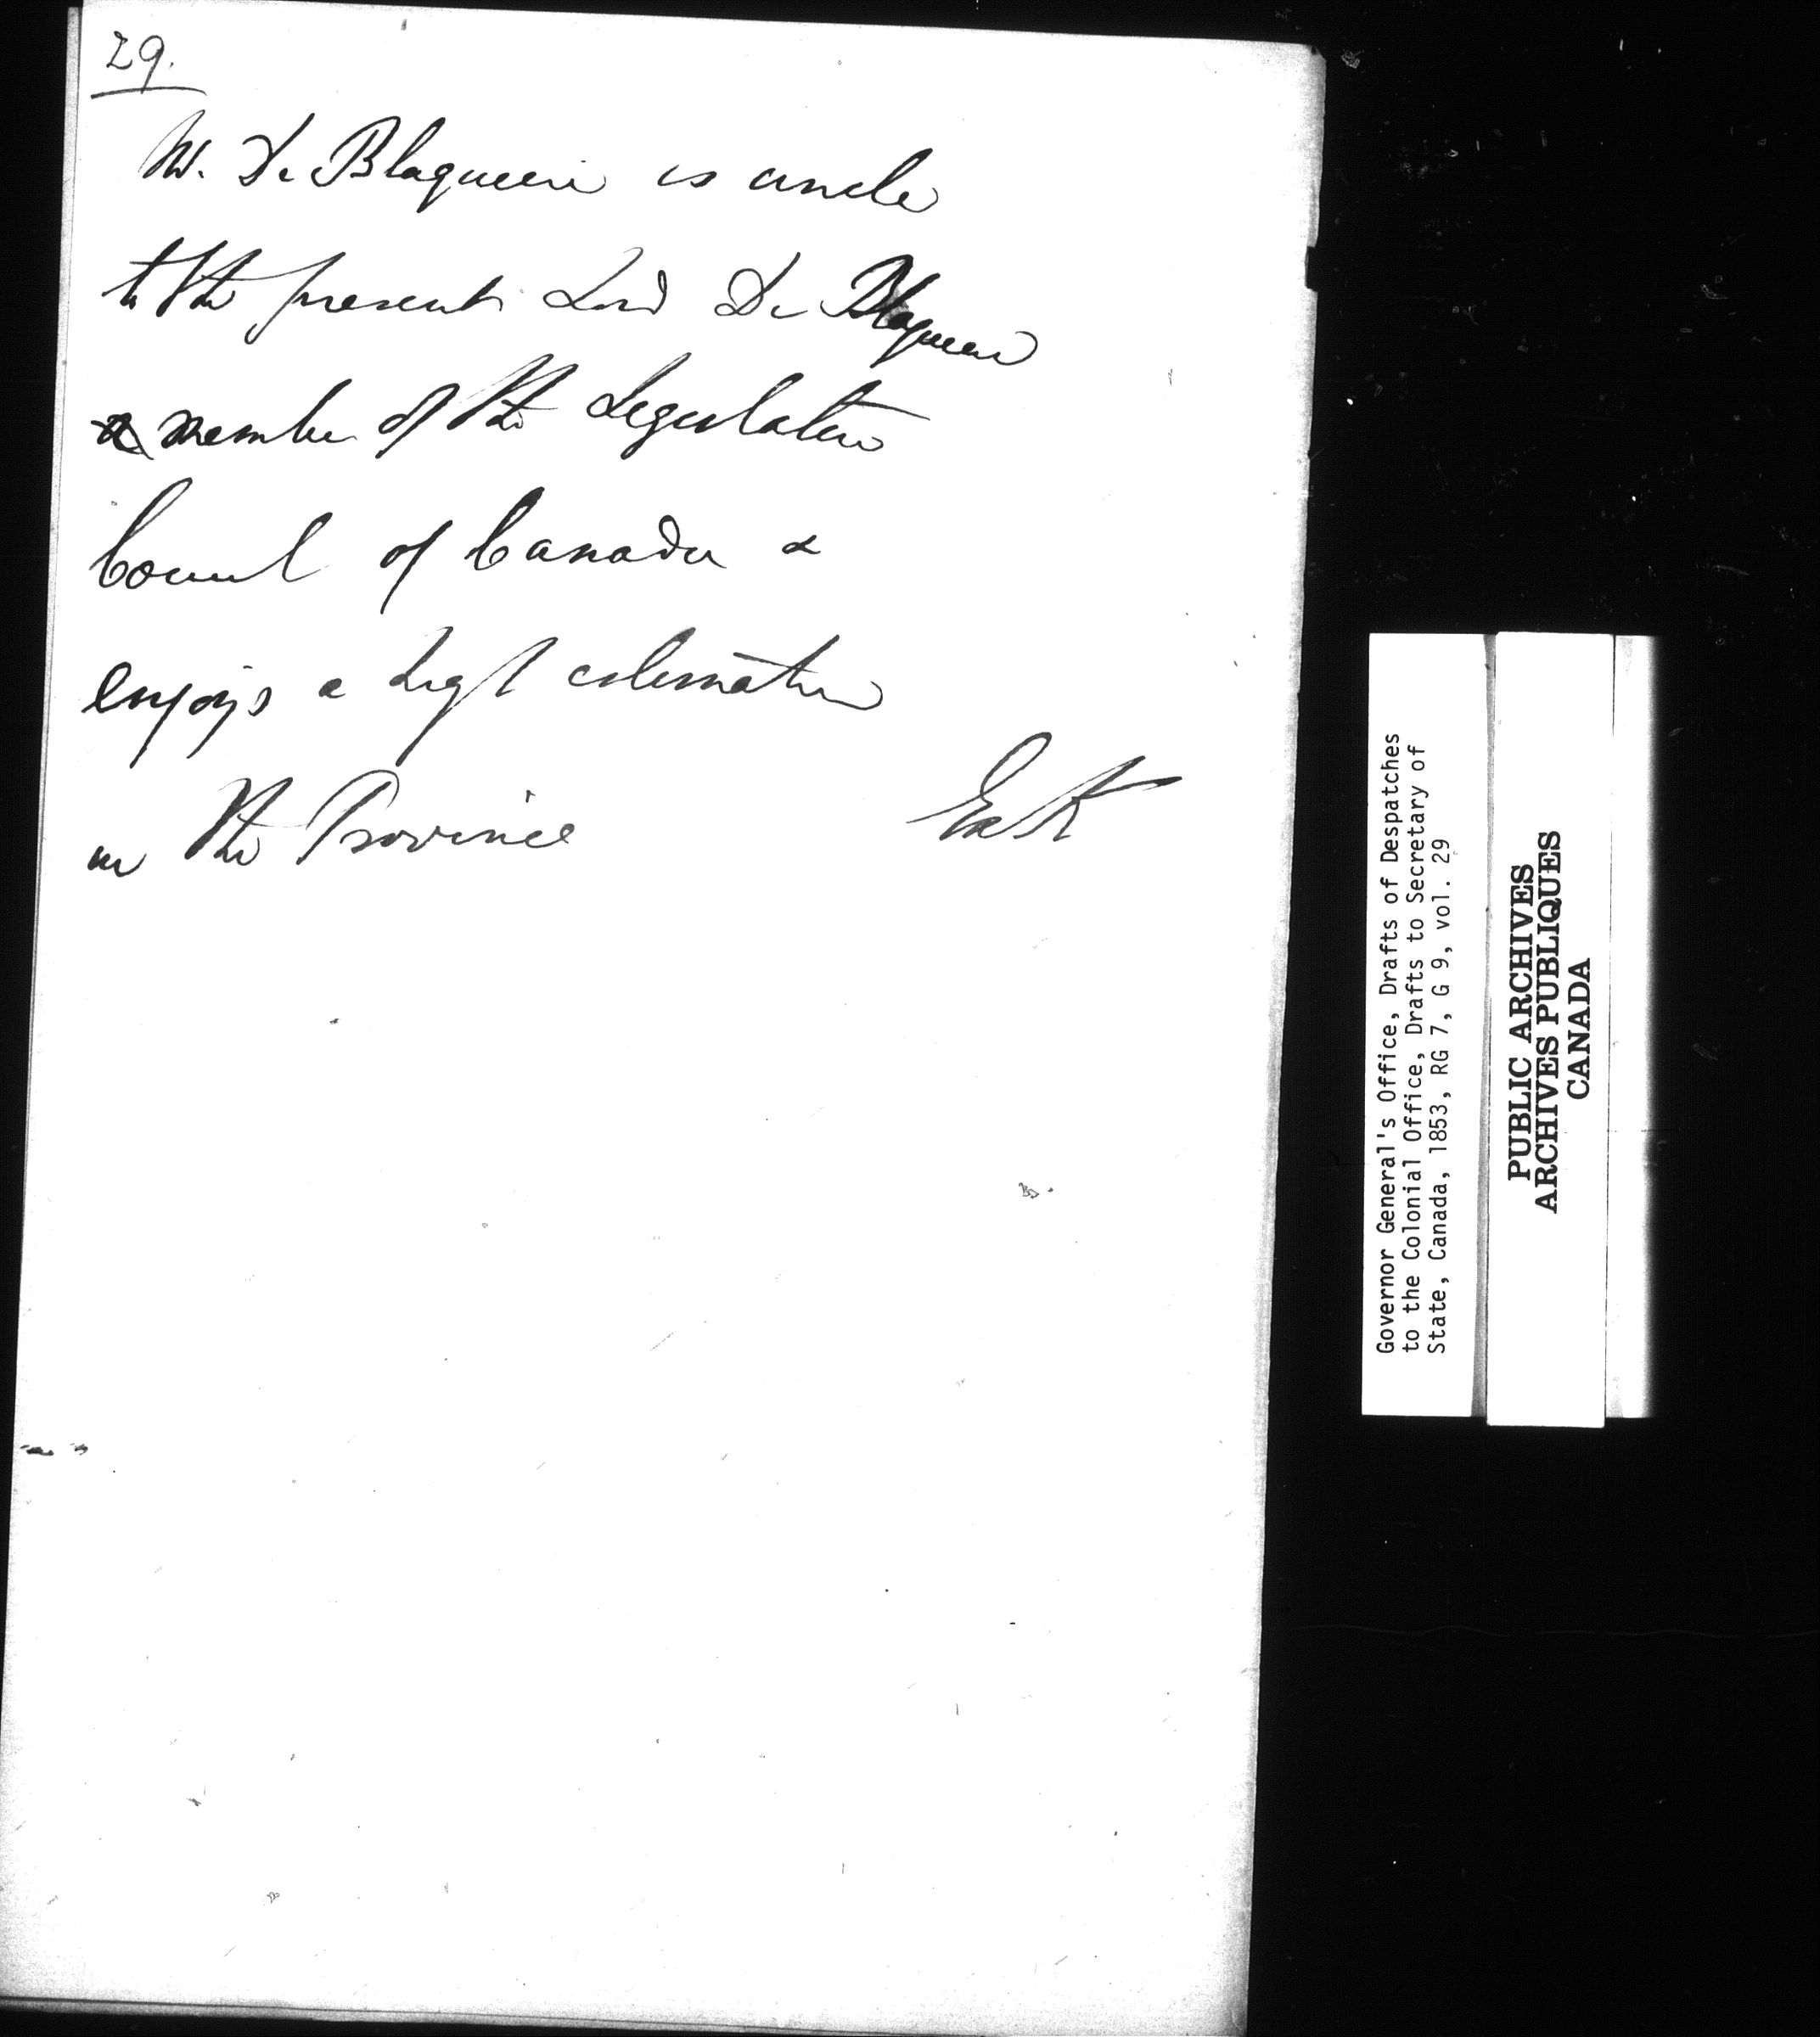 29.
Mr. De Blaquiere is uncle
to the present Lord De Blaquiere
a member of the Legislative
Council of Canada &
enjoys a high estimation
in the Province E & K
Governor General's Office, Drafts of Despatches
to the Colonial Office, Drafts to Secretary of
State, Canada, 1853, RG 7, G 9, vol. 29
PUBLIC ARCHIVES
ARCHIVES PUBLIQUES
CANADA